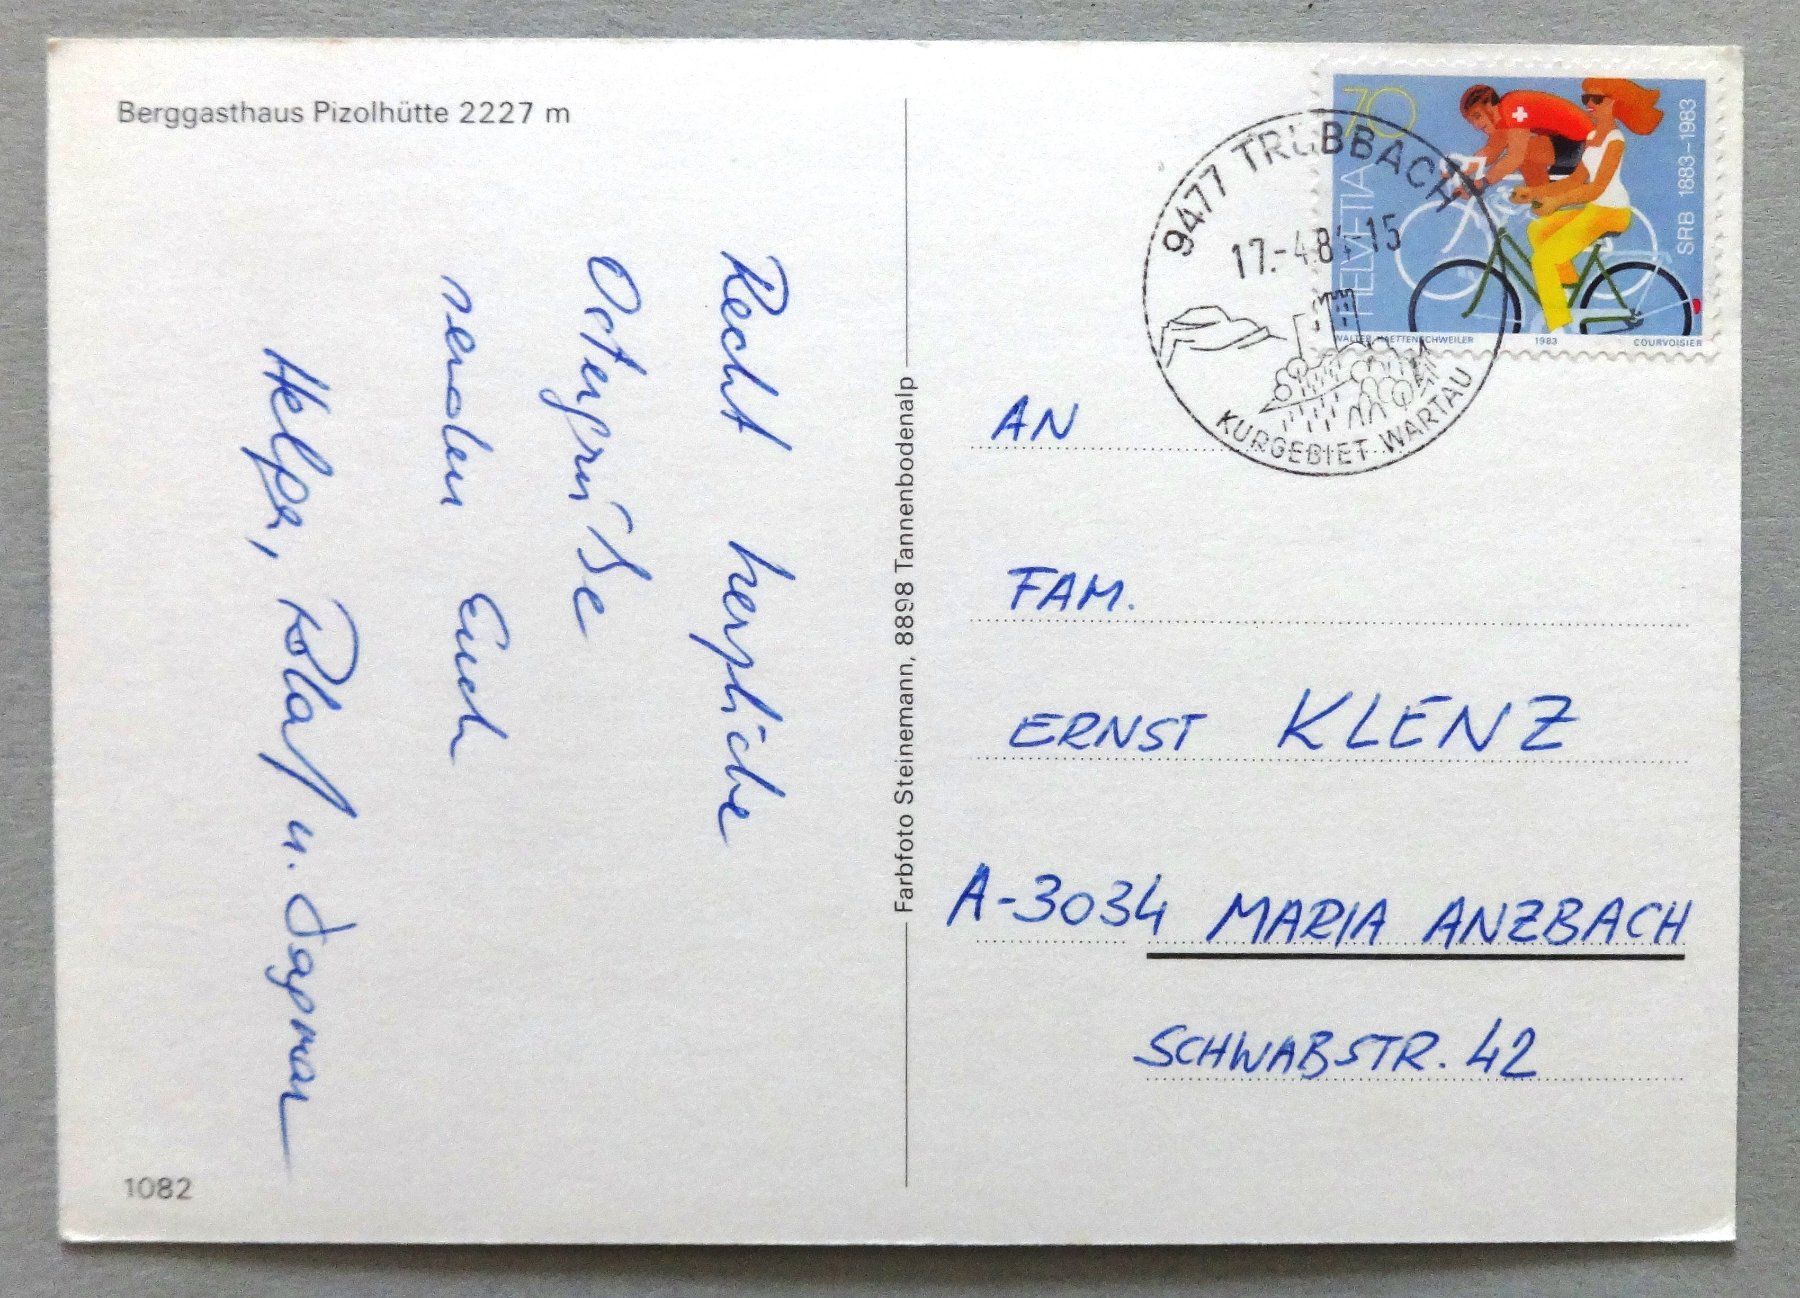 Berggasthaus Pizolhütte 2227 m
Recht herzliche
Ostergrüße
senden Euch
Helga, Rolf u. Dagmar
1082
Farbfoto Steinemann, 8898 Tannenbodenalp
70
HELVETIA
SRB 1883-1983
WALTER HAETTENSCHWEILER 1983 COURVOISIER
9477 TRÜBBACH
17.-4.84-15
KURGEBIET WARTAU
AN
FAM.
ERNST KLENZ
A-3034 MARIA ANZBACH
SCHWABSTR. 42